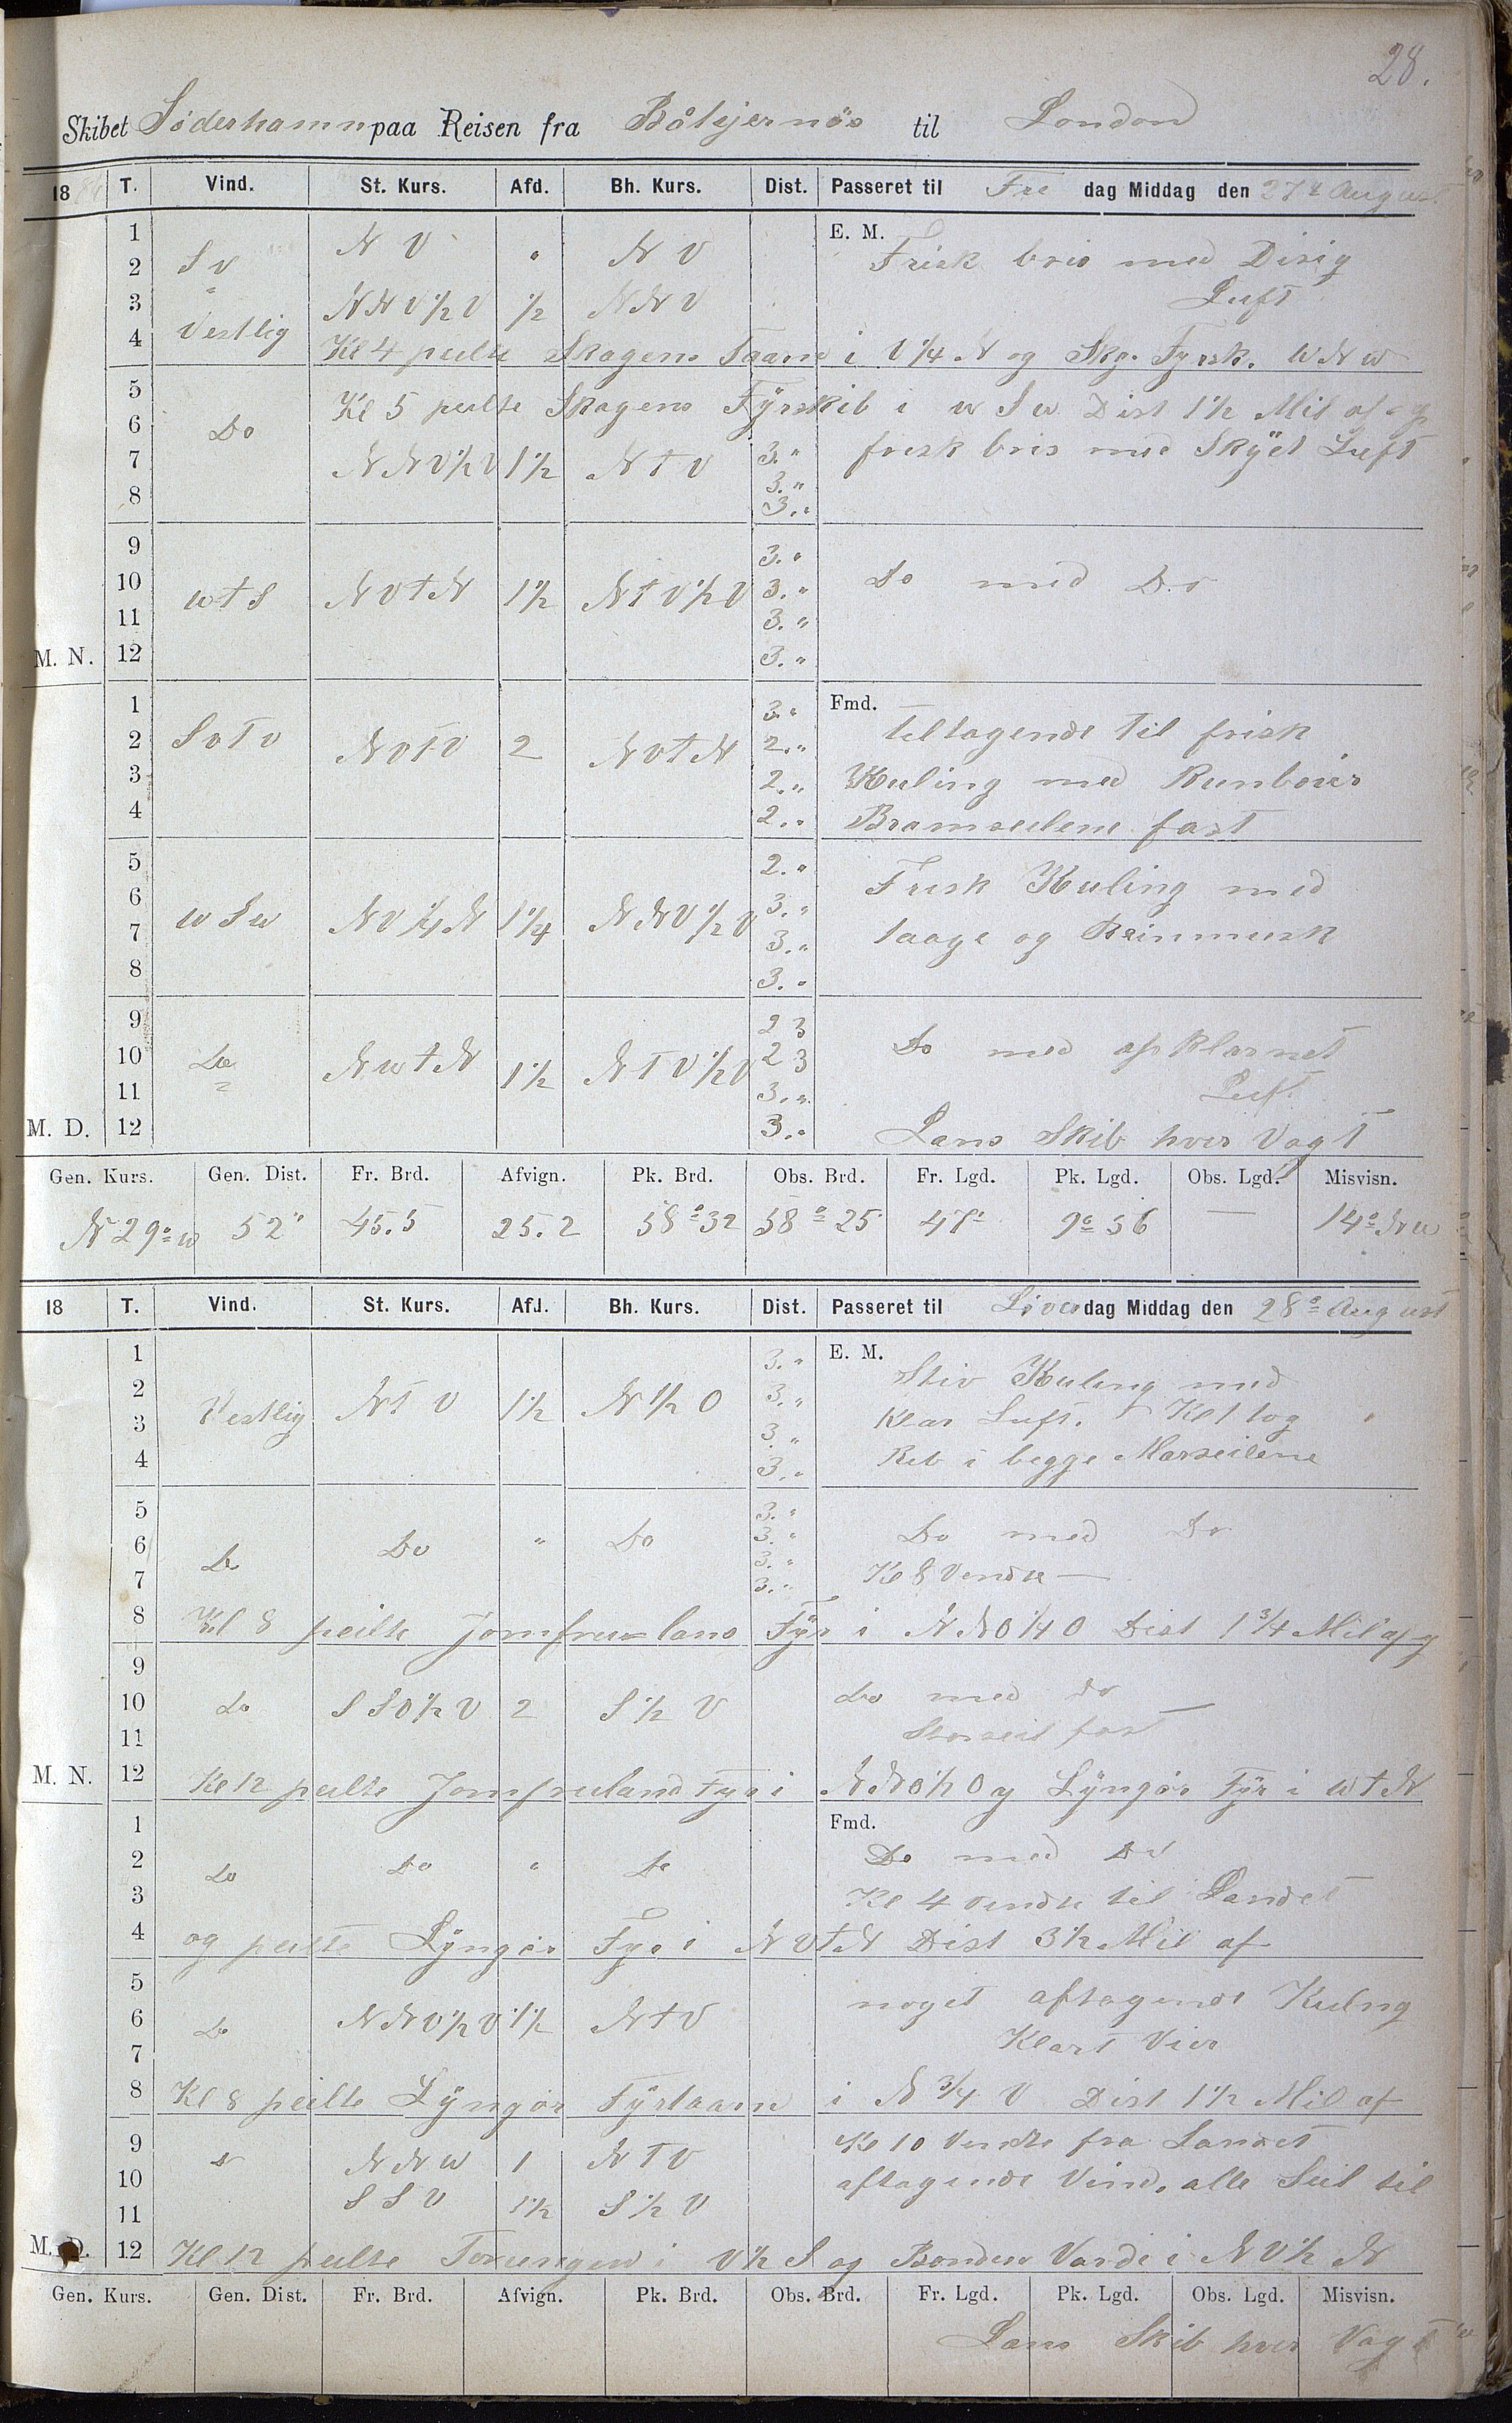 28.
Skibet Söderhamn paa Reisen fra Båtsjernös til London
18 T. Vind. St. Kurs. Afd. Bh. Kurs. Dist. Passeret til Fre dag Middag den 27de August
E. M.
1 N V " N V
2 S v Frisk bris med Disig
3 " N N V 1/2 V 1/2 N N V Luft
4 Vestlig Kl 4 peilte Skagens Taarn i V 1/4 N og Skg. Fyrsk. W N W
5 Kl 5 peilte Skagens Fÿrskib i w S w Dist 1 1/2 Mil af
6 Do
7 N N V 1/2 V 1 1/2 N t V 3. " frisk bris med Skÿet Luft
3. "
8 3. "
9 3. "
10 w t S N V t N 1 1/2 N t V 1/2 V 3. " Do med Do
11 3. "
M. N. 12 3. "
Fmd.
1 3. "
2 S v T v N V t V 2 N V t N 2. " tiltagende til frisk
3 2. " Kuling med
4 2. " Bramseilene fast
5 2. "
6 3. " Frisk Kuling med
7 w S w N V 1/4 N 1 1/4 N N V 1/2 V 3. " taage og
8 3. "
9 2 3
10 Do N w t N 1 1/2 N T V 1/2 V 2 3 Do med opklarnet
11 3. " Luft
M. D. 12 3. " Lens Skib hver Vagt
Gen. Kurs. Gen. Dist. Fr. Brd. Afvign. Pk. Brd. Obs. Brd. Fr. Lgd. Pk. Lgd. Obs. Lgd. Misvisn.
N 29° w 52" 45.5 25.2 58° 32 58° 25 47' 9° 56 — 14° N w
18 T. Vind. St. Kurs. Afd. Bh. Kurs. Dist. Passeret til Löver dag Middag den 28de August
E. M.
1 3. "
2 Vestlig N T V 1 1/2 N 1/2 O 3. " Stiv Kuling med
3 3. " Klar Luft. Kl 1 tog
4 3. " Reb i begge Marseilene
5 3. "
6 Do Do " Do 3. " Do med Do
7 3. " Kl 8 Vendte —
3. "
8 Kl 8 peilte Jomfruelans Fÿr i N N O 1/4 O Dist 1 3/4 Mil af
9
10 Do S S O 1/2 V 2 S 1/2 V Do med do
11 Storseil fast
M. N. 12 Kl 12 peilte Jomfruland Fyr i N N O 1/2 O og Lÿngör Fÿr i w t N
Fmd.
1
2 Do Do " Do Do med Do
3 Kl 4 vendte til Landet
4 og peilte Lÿngör Fyr i N V t N Dist 3 1/2 Mil af
5 noget aftagende Kulng
6 Do N N V 1/2 V 1 1/2 N t V
7 Klart Veir
8 Kl 8 peilte Lÿngör Fÿrtaarn i N 3/4 V Dist 1 1/2 Mil af
9 Do N N W 1 N T V Kl 10 Vendte fra Landet
10 S S V 1 1/2 S 1/2 V aftagende Vind, alle Seil til
11
M. D. 12 Kl 12 peilte Torungen i V 1/2 S og Varde i N V 1/2 N
Gen. Kurs. Gen. Dist. Fr. Brd. Afvign. Pk. Brd. Obs. Brd. Fr. Lgd. Pk. Lgd. Obs. Lgd. Misvisn.
Lens Skib hver Vagt